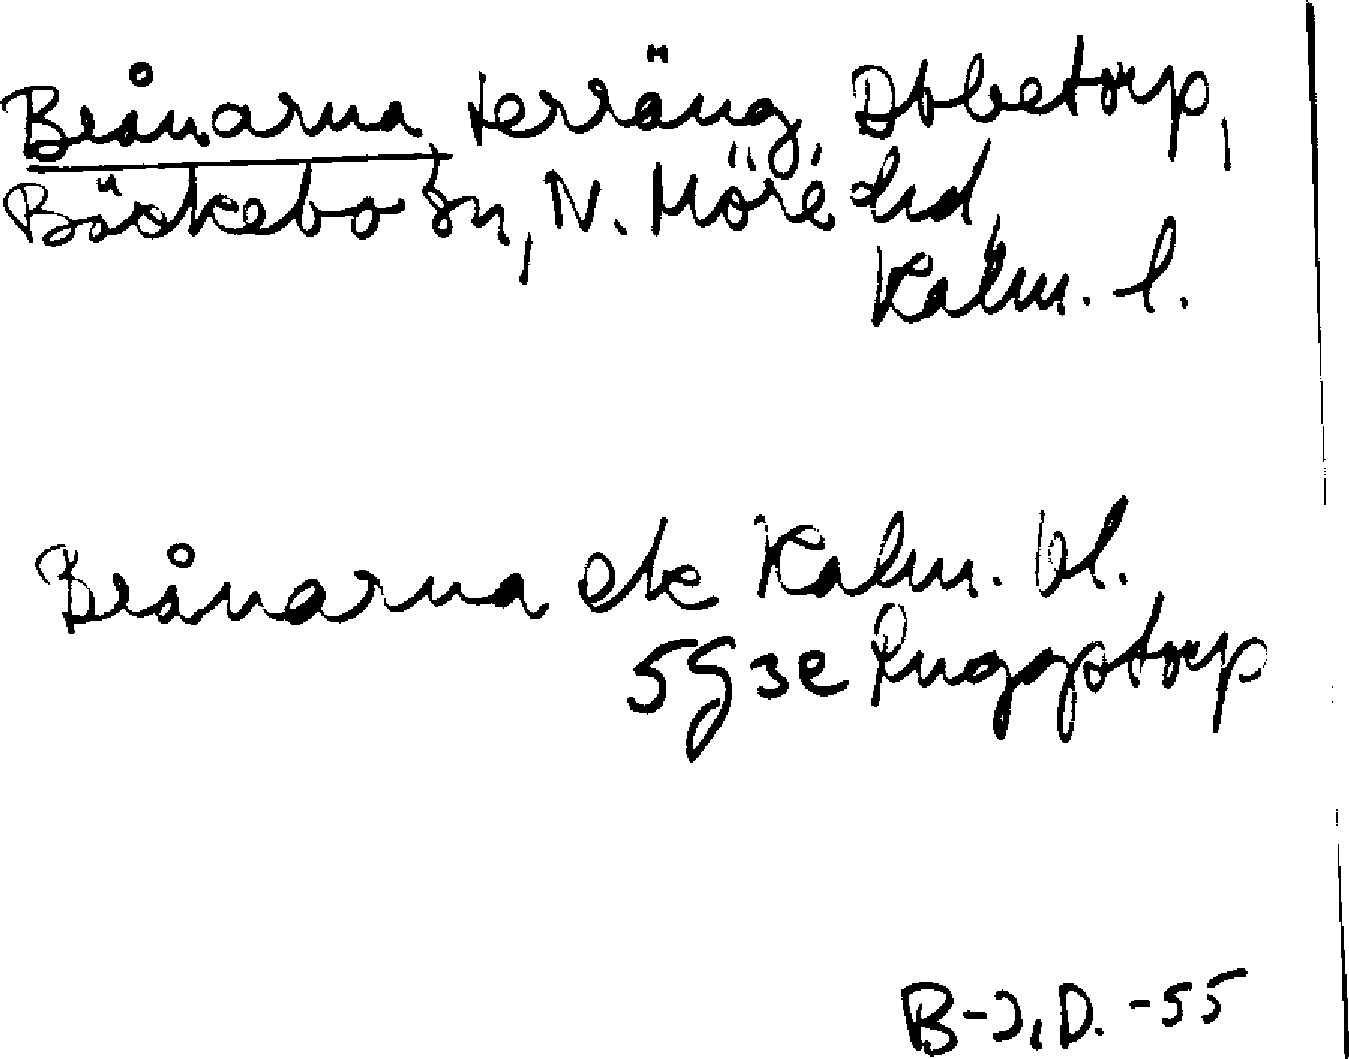 Brånarna, terräng, Döbetorp,
Bäckebo sn, N. Möre hd,
Kalm. l.
Brånarna ek Kalm. bl.
5G3e Ruggstorp
B-J, D. -55